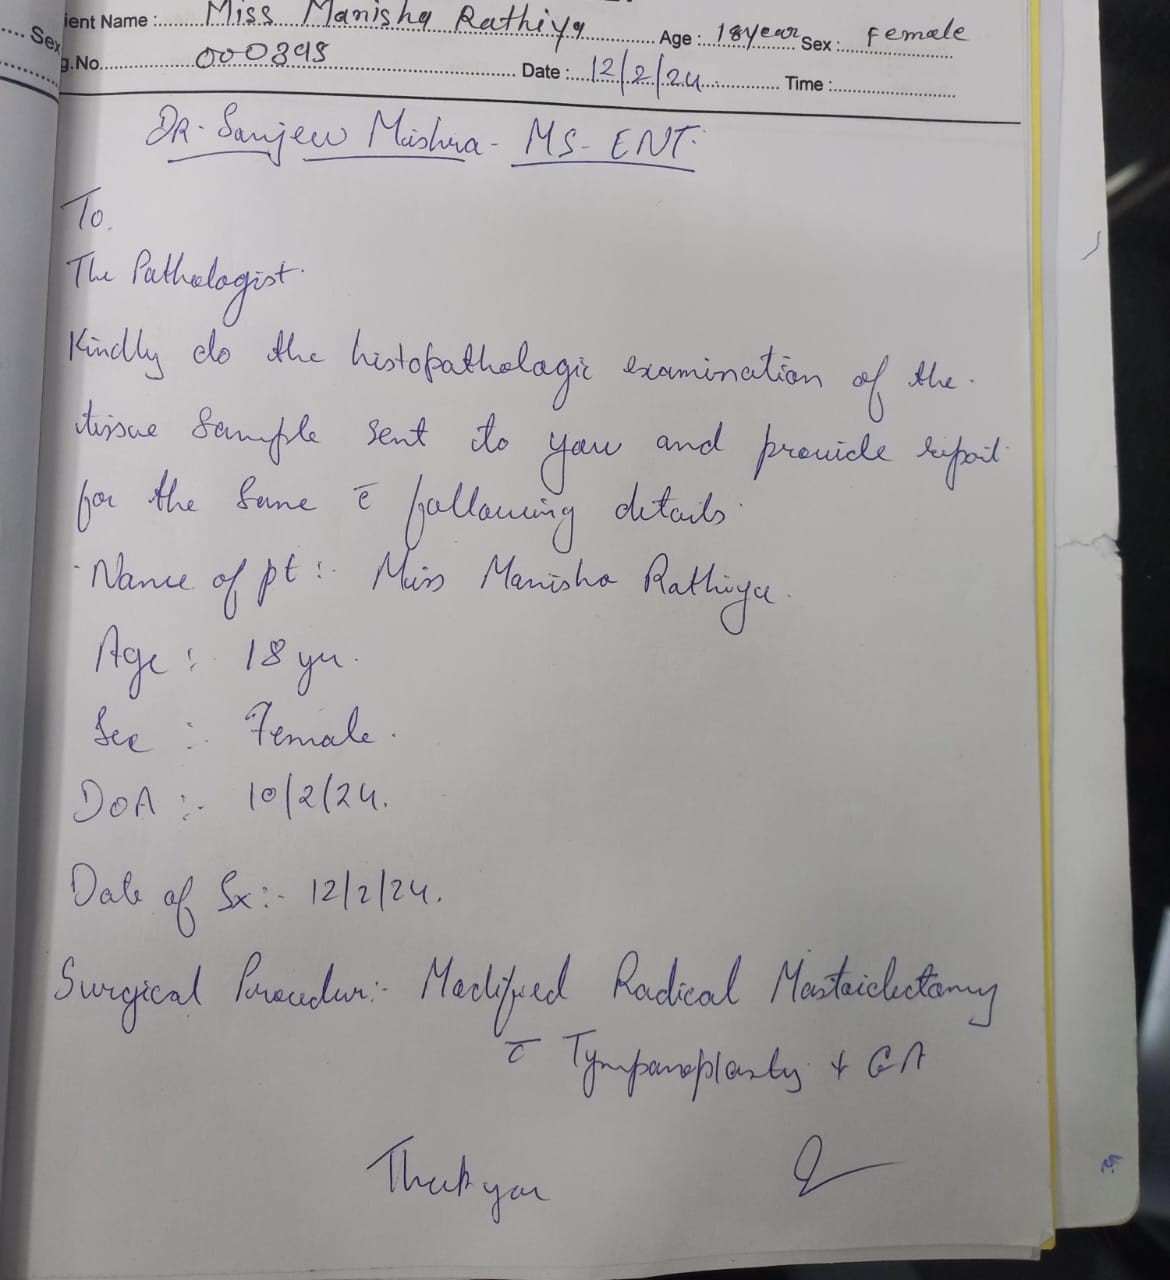 ient Name :..... Miss Manisha Rathiya ..... Age :.. 18year Sex :.... Female
.... Sex
g.No..... 000398 ..... Date :... 12/2/24 ..... Time :.....
DR. Sanjew Mishra - MS- ENT.
To.
The Pathologist.
Kindly do the histopathologic examination of the.
tissue Sample sent to you and provide report
for the Same c̄ following details
Name of pt :- Miss Manisha Rathiya.
Age :- 18 yr.
Sex :- Female.
DOA :- 10/2/24.
Date of Sx:- 12/2/24.
Surgical Procedur:- Modified Radical Mastoidectomy
c̄ Tympanoplasty + GA
Thank you